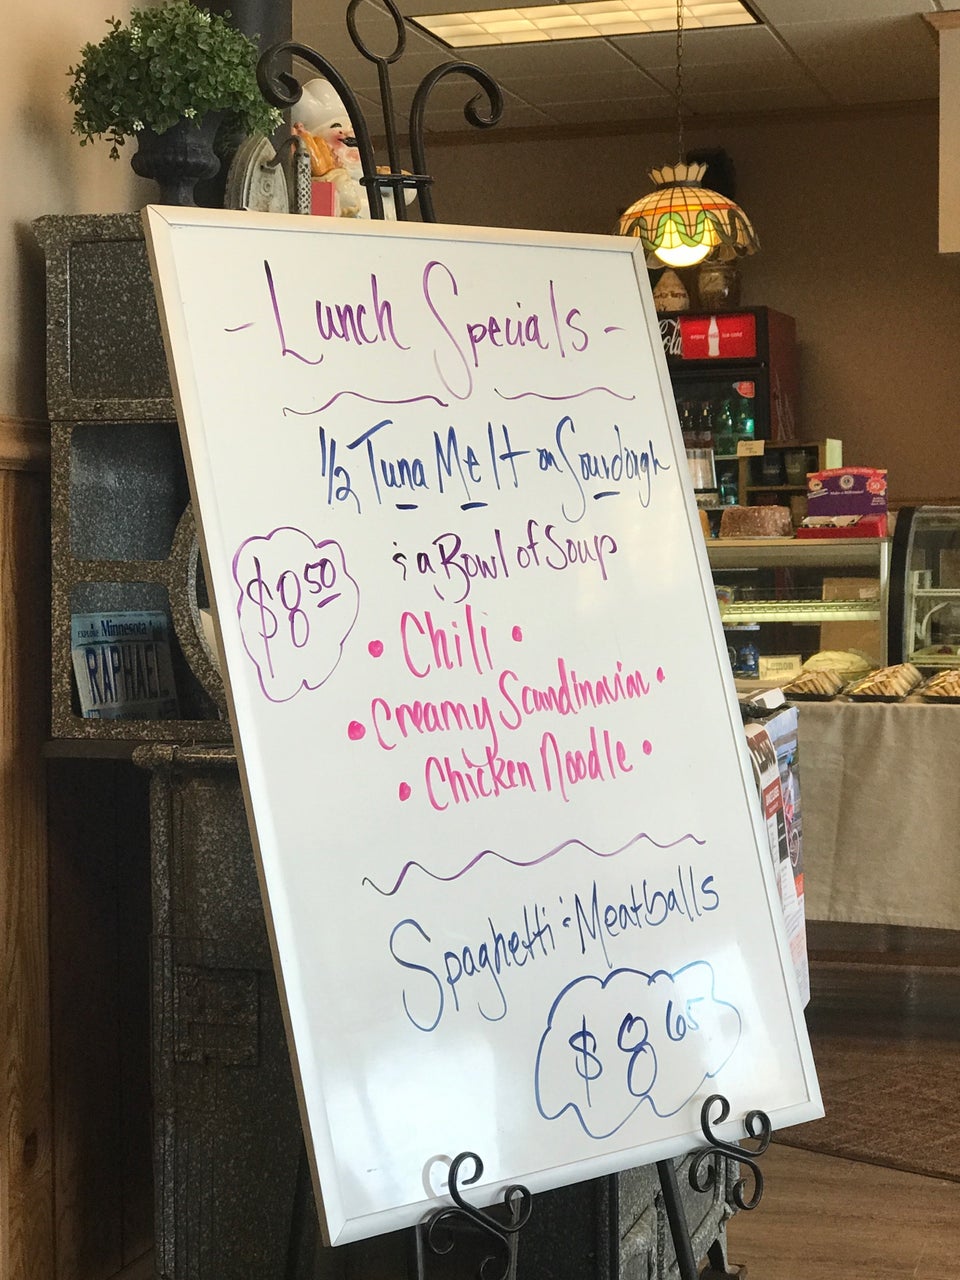 - Lunch Specials -
1/2 Tuna Melt on Sourdough
& a Bowl of Soup
$8.50
• Chili •
• Creamy Scandinavian •
• Chicken Noodle •
Spaghetti & Meatballs
$8.65
EXPLORE Minnesota
RAPHAEL
enjoy
ice cold
Lemon